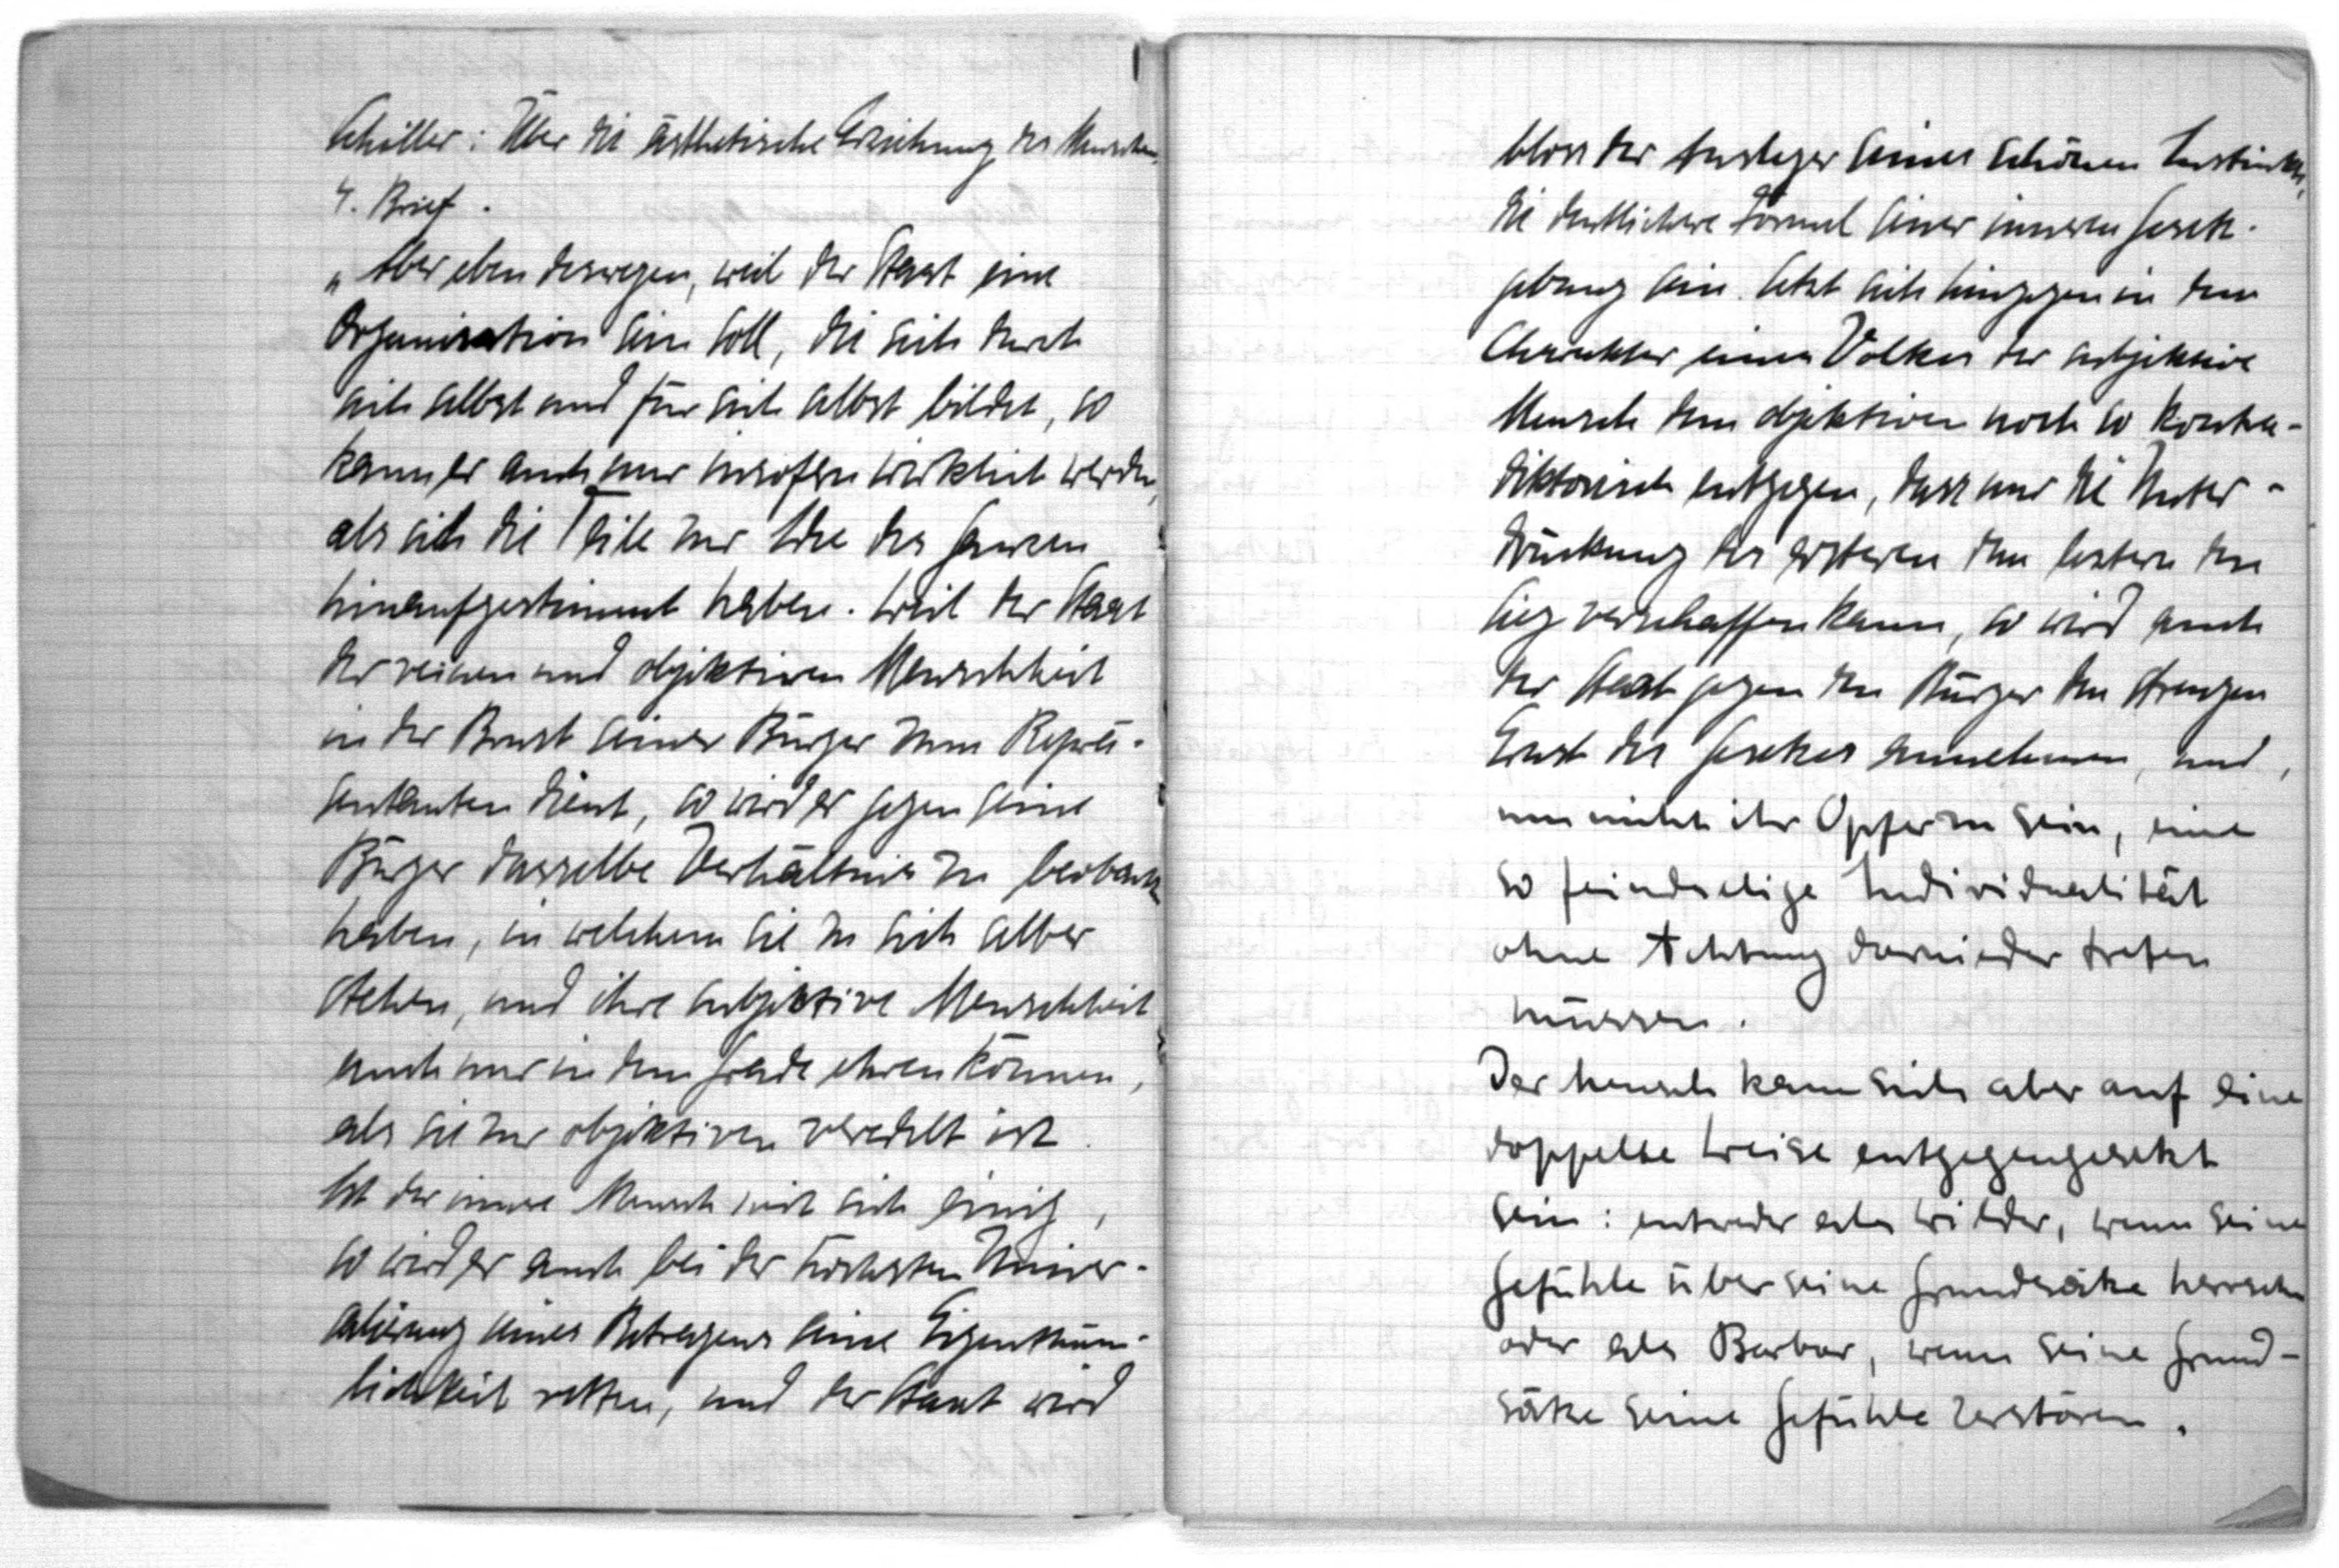 Schiller: Über die ästhetische Erziehung des Menschen
4. Brief.
„Aber eben deswegen, weil der Staat eine
Organisation sein soll, die sich durch
sich selbst und für sich selbst bildet, so
kann er auch nur insofern wirklich werden,
als sich die Teile zur Idee des Ganzen
hinaufgestimmt haben. Weil der Staat
der reinen und objektiven Menschheit
in der Brust seiner Bürger zum Reprä-
sentanten dient, so wird er gegen seine
Bürger dasselbe Verhältnis zu beobachten
haben, in welchem sie zu sich selber
stehen, und ihre subjektive Menschheit
auch nur in dem Grade ehren können,
als sie zur objektiven veredelt ist.
Ist der innere Mensch mit sich einig,
so wird er auch bei der höchsten Univer-
salisierung seines Betragens seine Eigentüm-
lichkeit retten, und der Staat wird
bloss der Ausleger seines schönen Instinkts,
die deutlichere Formel seiner inneren Gesetz-
gebung sein. Setzt sich hingegen in dem
Charakter eines Volkes der subjektive
Mensch dem objektiven noch so kontra-
diktorisch entgegen, dass nur die Unter-
drückung des ersteren dem letztern den
Sieg verschaffen kann, so wird auch
der Staat gegen den Bürger den strengen
Ernst des Gesetzes annehmen, und,
um nicht ihr Opfer zu sein, eine
so feindselige Individualität
ohne Achtung darnieder treten
müssen.
Der Mensch kann sich aber auf eine
doppelte Weise entgegengesetzt
sein: entweder als Wilder, wenn seine
Gefühle über seine Grundsätze herrschen
oder als Barbar, wenn seine Grund-
sätze seine Gefühle zerstören.